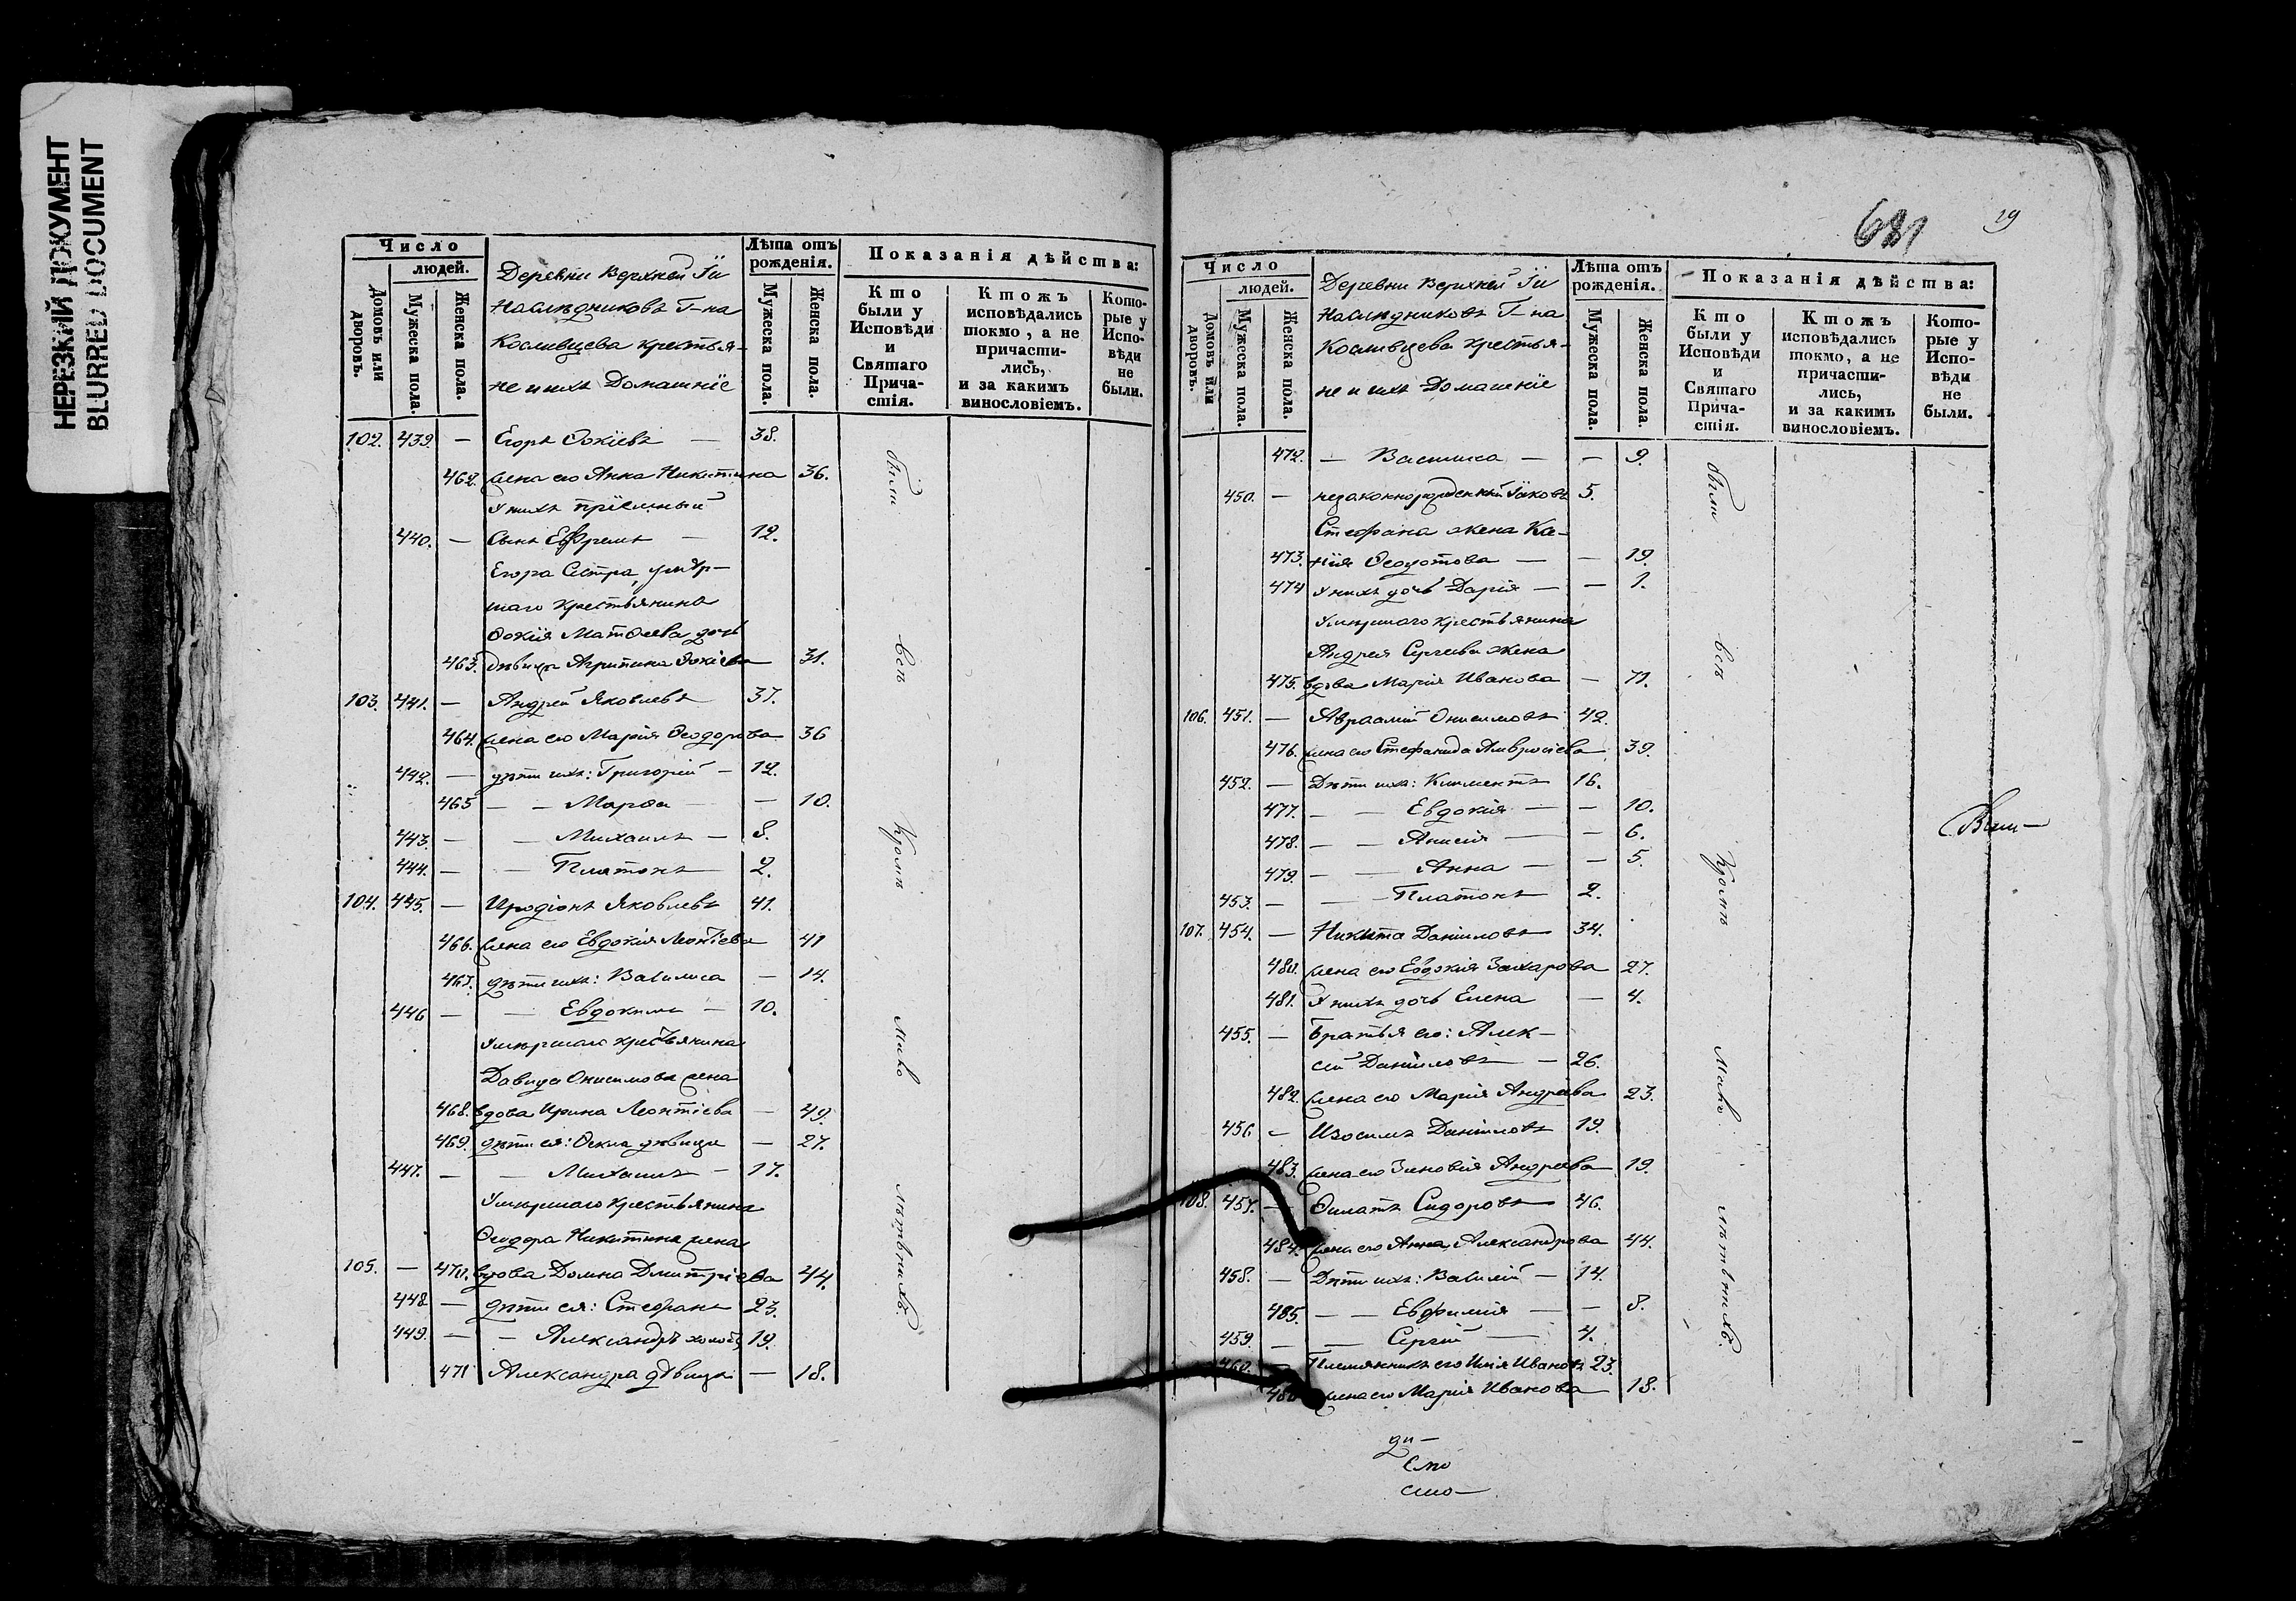 НЕРЕЗКИЙ ДОКУМЕНТ
BLURRED DOCUMENT
Число
людей.
Домовъ или дворовъ.
Мужеска пола.
Женска пола.
Деревни Верхней
Наслѣдниковъ Г-на
крестья-
не и ихъ Домашніе
Лѣта отъ рожденія.
Мужеска пола.
Женска пола.
Показанія дѣйства:
Кто были у Исповѣди и Святаго Прича-стія.
Ктожъ исповѣдались токмо, а не причасти-лись, и за какимъ винословіемъ.
Кото-рые у Испо-вѣди не были.
102. 439. — Егоръ Ѳокіевъ — 38.
462. жена его Анна Никитина 36.
У нихъ пріемный
440. — Сынъ Ефремъ — 12.
Егора Сестра, умер-
шаго крестьянина
Ѳокія Матѳеева дочь
463. дѣвица Агрипина Ѳокіева 31.
103. 441. — Андрей Яковлевъ 37.
464. жена его Марія Ѳеодорова 36
442. — дѣти ихъ: Григорій — 12.
465 — — Марѳа — 10.
443. — — Михаилъ — 8.
444. — — Платонъ 2.
104. 445. — Иродіонъ Яковлевъ 41.
466. жена его Евдокія Леонтіева 41
467. дѣти ихъ: Василиса — 14.
446 — — Евдокимъ — 10.
Умершаго крестьянина
Давида Онисимова жена
468. вдова Ирина Леонтіева — 49.
469. дѣти ея: Ѳекла дѣвица — 27.
447. — — Михаилъ — 17.
Умершаго крестьянина
Ѳеодора Никитина жена
105. — 470. вдова Домна Дмитріева 44.
448 — дѣти ея: Стефанъ 23.
449. — — Александръ холостъ 19.
471 Александра дѣвица — 18.
были
всѣ
кромѣ
мало
лѣтнихъ.
681
19
Число
людей.
Домовъ или дворовъ.
Мужеска пола.
Женска пола.
Деревни Верхней
Наслѣдниковъ Г-на
крестья-
не и ихъ Домашніе
Лѣта отъ рожденія.
Мужеска пола.
Женска пола.
Показанія дѣйства:
Кто были у Исповѣди и Святаго Прича-стія.
Ктожъ исповѣдались токмо, а не причасти-лись, и за какимъ винословіемъ.
Кото-рые у Испо-вѣди не были.
472. — Василиса — — 9.
450. — незаконнорожденный Іаковъ 5.
Стефана жена Ка-
473. нія Ѳедотова — — 19.
474 У нихъ дочь Дарія — — 1.
Умершаго крестьянина
Андрея Сергеева жена
475. вдова Марія Иванова — 71.
106. 451. — Авраамій Онисимовъ 42.
476. жена его Стефанида Амвросіева 39.
452. — Дѣти ихъ: Климентъ 16.
477. — — Евдокія — — 10.
478. — — Анисія — — 6.
479. — — Анна — — 5.
453. — — Платонъ 2.
107. 454. — Никита Даніиловъ 34.
480. жена его Евдокія Захарова 27.
481. У нихъ дочь Елена — 4.
455. — Братья его: Алек-
сѣй Даніиловъ — 26.
482. жена его Марія Андреева 23.
456 — Изосимъ Даніиловъ 19.
483. жена его Зиновія Андреева 19.
108. 457. — Филатъ Сидоровъ 46.
484. жена его Анна Александрова 44.
458. — Дѣти ихъ: Василій — 14.
485. — — Евфимія — — 8.
459. — — Сергій — 4.
460. — Племянникъ его Илія Ивановъ 23.
486 жена его Марія Иванова 18.
были
всѣ
кромѣ
мало
лѣтнихъ.